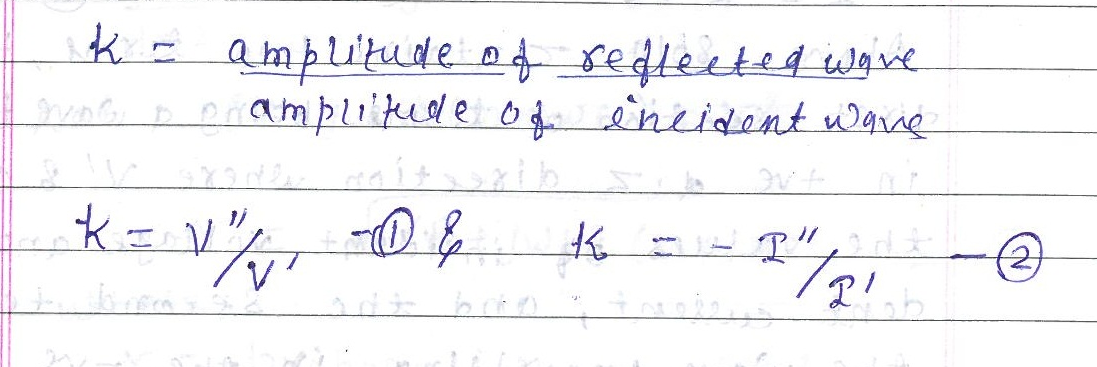 k = amplitude of reflected wave
amplitude of incident wave
k = V"/V' - ① & k = - I"/I' - ②